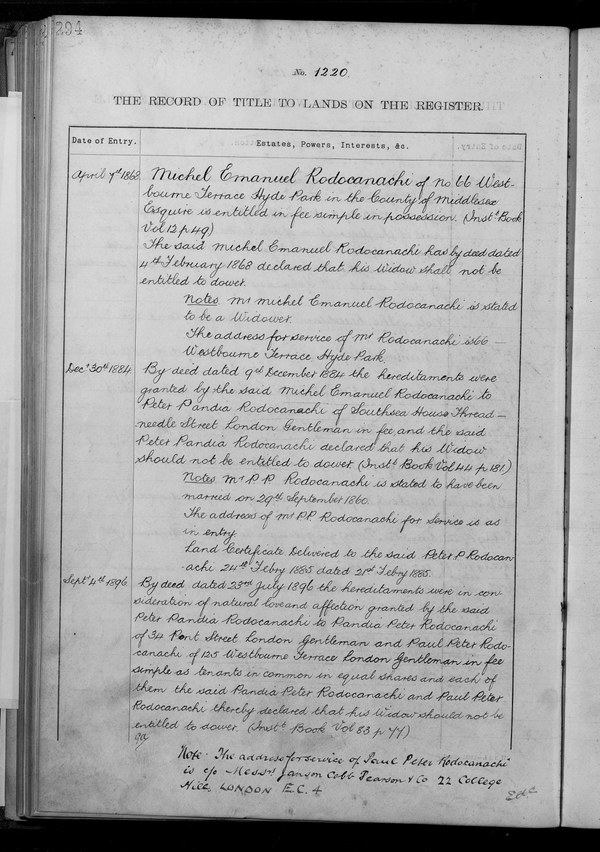 294
No. 1220.
THE RECORD OF TITLE TO LANDS ON THE REGISTER.
Date of Entry.
Estates, Powers, Interests, &c.
April 7th 1868
Michel Emanuel Rodocanachi of No 66 West-
bourne Terrace Hyde Park in the County of Middlesex
Esquire is entitled in fee simple in possession. (Instt Book
Vol 12 p 49)
The said Michel Emanuel Rodocanachi has by deed dated
4th February 1868 declared that his Widow shall not be
entitled to dower.
Notes Mr Michel Emanuel Rodocanachi is stated
to be a Widower.
The address for service of Mr Rodocanachi is 66 —
Westbourne Terrace Hyde Park
Decr 30th 1884
By deed dated 9th December 1884 the hereditaments were
granted by the said Michel Emanuel Rodocanachi to
Peter Pandia Rodocanachi of Southsea House Thread—
needle Street London Gentleman in fee, and the said
Peter Pandia Rodocanachi declared that his Widow
should not be entitled to dower (Instt Book Vol 44 p 181)
Notes Mr P P Rodocanachi is stated to have been
married on 29th September 1860.
The address of Mr P.P. Rodocanachi for service is as
in entry.
Land Certificate Delivered to the said Peter P Rodocan-
achi 24th Febry 1885 dated 21st Febry 1885.
Septr 4th 1896
By deed dated 23rd July 1896 the hereditaments were in con-
sideration of natural love and affection granted by the said
Peter Pandia Rodocanachi to Pandia Peter Rodocanachi
of 34 Pont Street London Gentleman and Paul Peter Rodo-
canachi of 125 Westbourne Terrace London Gentleman in fee
simple as tenants in common in equal shares and each of
them the said Pandia Peter Rodocanachi and Paul Peter
Rodocanachi thereby declared that his Widow should not be
entitled to dower. (Instt Book Vol 83 p 77)
Note. The address for service of Paul Peter Rodocanachi
is c/o Messrs Janson Cobb Pearson & Co 22 College
Hill, LONDON E.C. 4